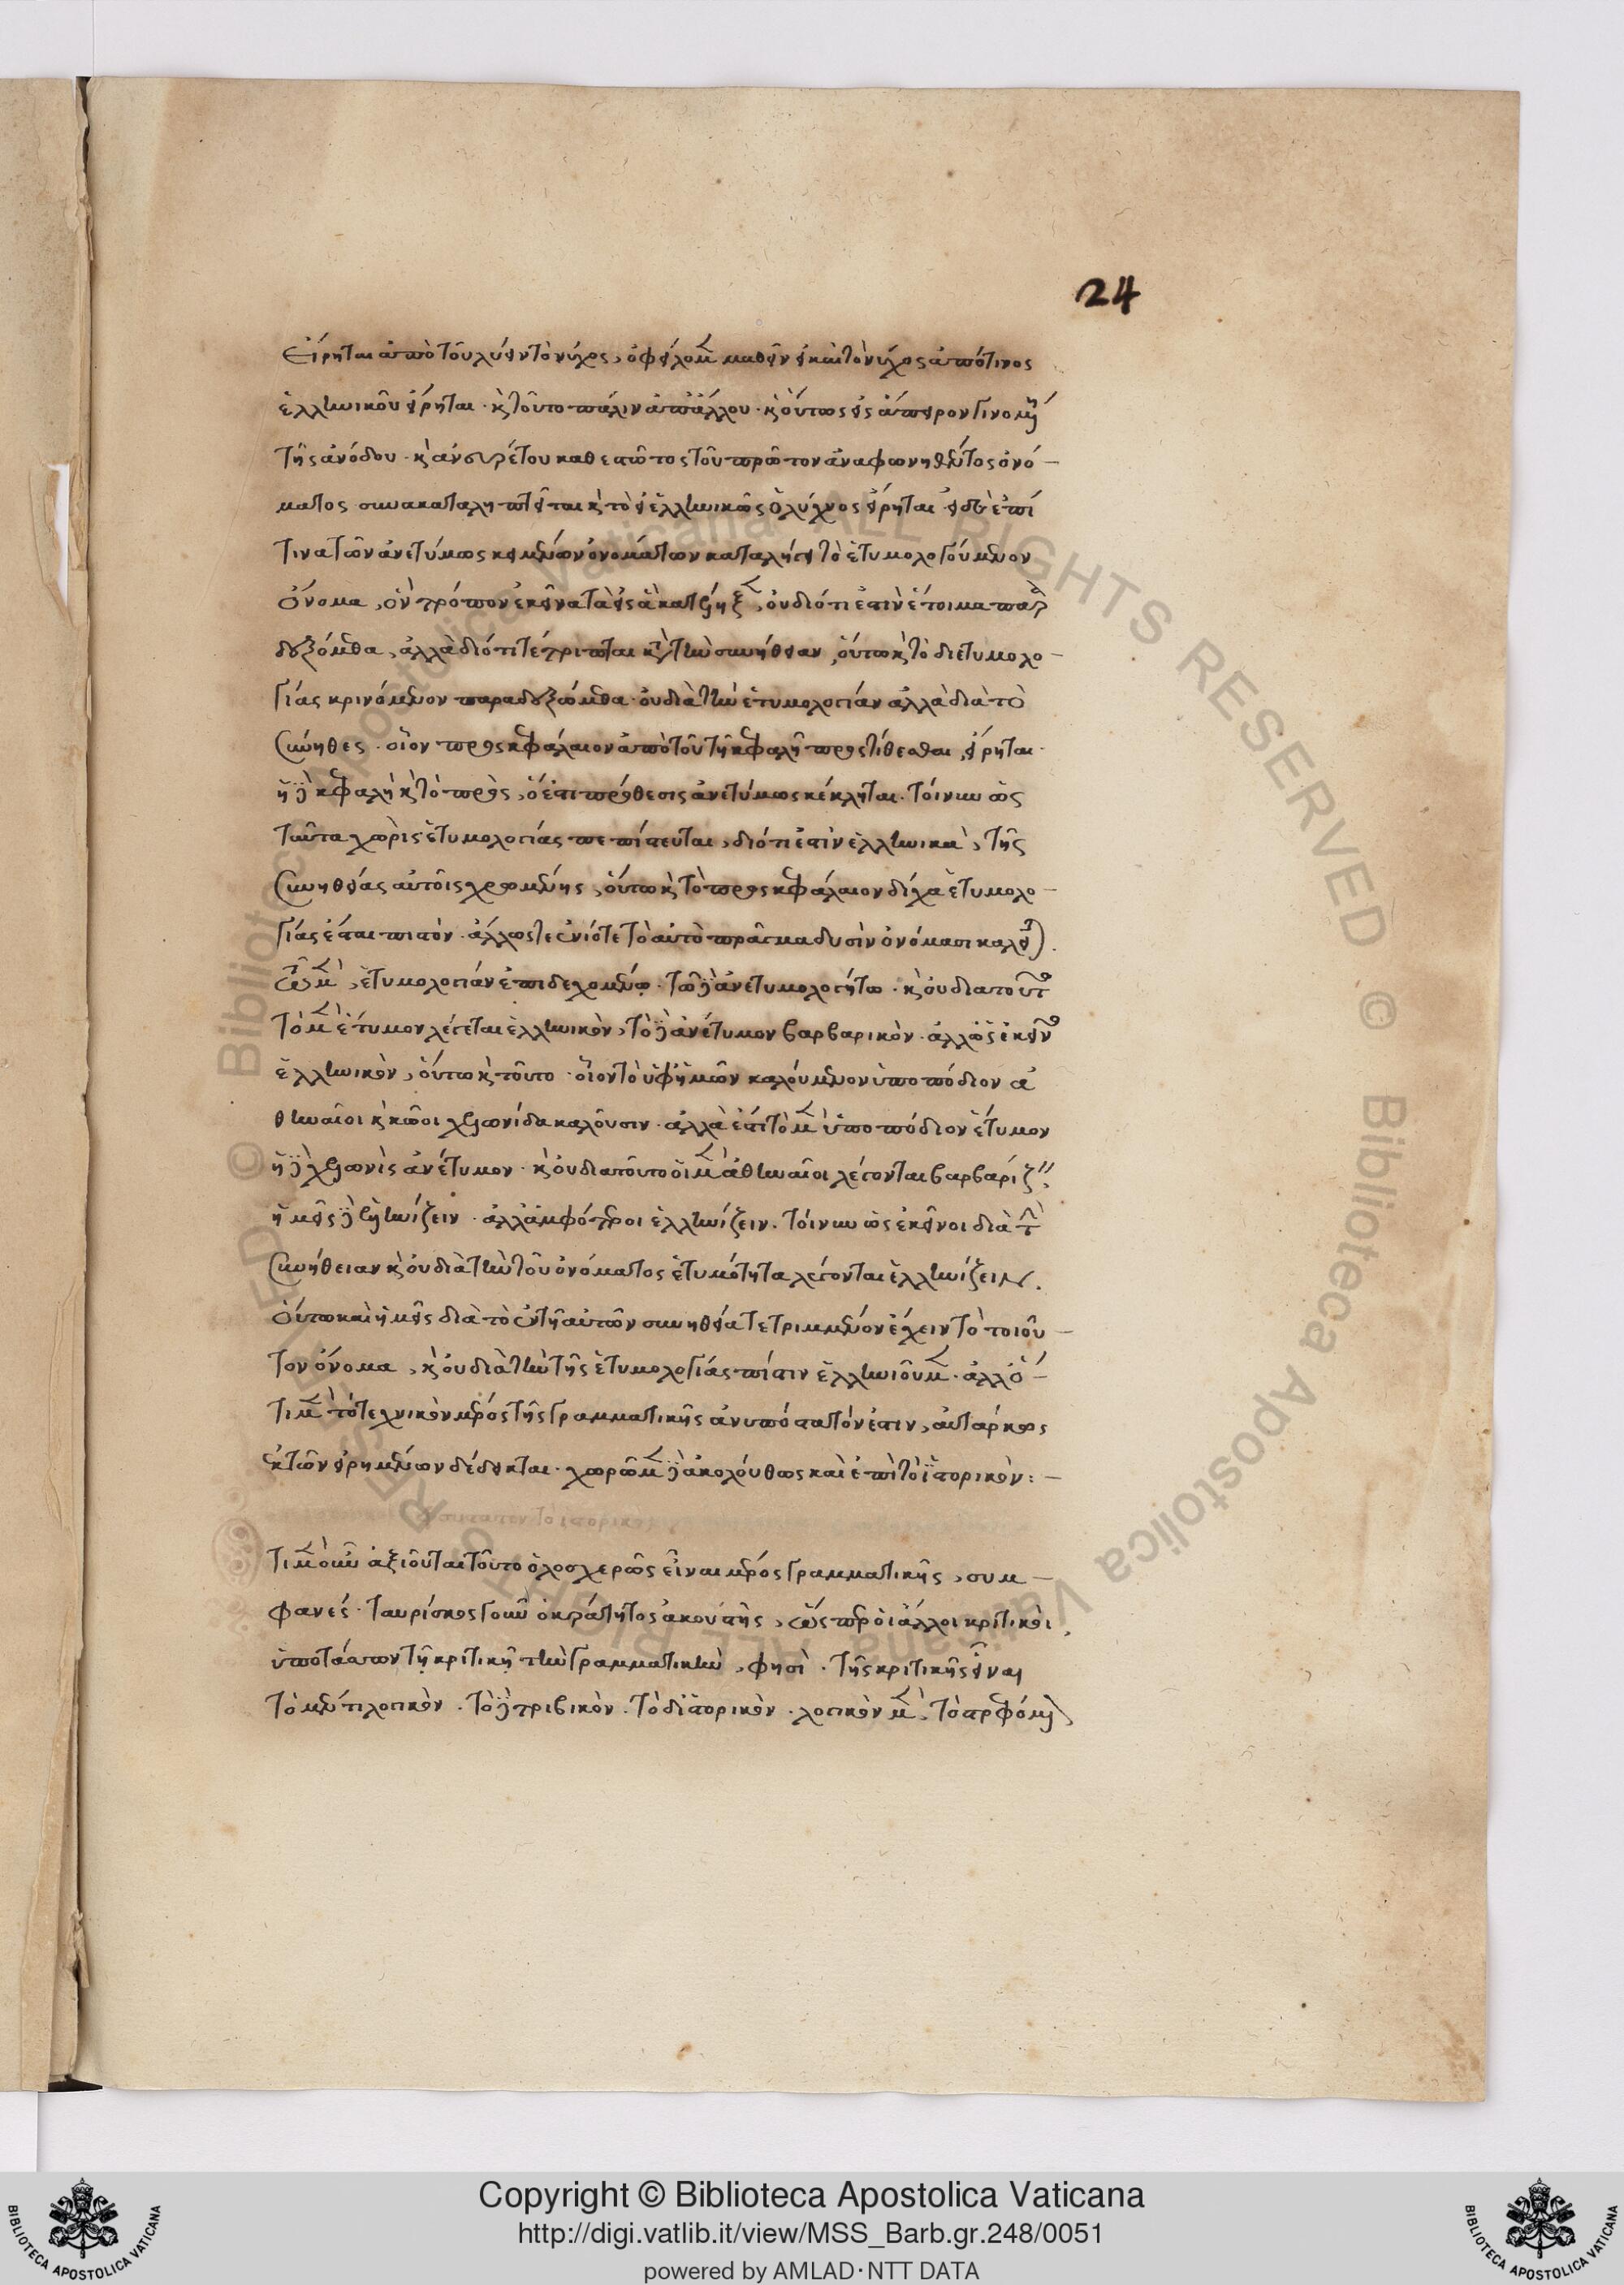 24
Εἴρηται ἀπὸ τοῦ λύειν τὸ νύχος, ὀφείλομεν μαθεῖν εἰ καὶ τὸ νύχος ἀπό τινος
ἑλληνικοῦ εἴρηται · καὶ τοῦτο πάλιν ἀπ' ἄλλου · καὶ οὕτως εἰς ἄπειρον γινομένης
τῆς ἀνόδου · καὶ ἀνευρέτου καθεστῶτος τοῦ πρῶτον ἀναφωνηθέντος ὀνό-
ματος συνακαταληπτεῖται καὶ τὸ εἰ ἑλληνικῶς ὁ λύχνος εἴρηται · εἰ δὲ ἐπί
τινα τῶν ἀνετύμως κειμένων ὀνομάτων καταλήγει τὸ ἐτυμολογούμενον
ὄνομα, ὃν τρόπον ἐκεῖνα τὰ εἰς ἃ κατέληξεν, οὐ διότι ἐστὶν ἕτοιμα παρα
δεξόμεθα, ἀλλὰ διότι τέτριπται κατὰ τὴν συνήθειαν, οὕτω καὶ τὸ δι' ἐτυμολο-
γίας κρινόμενον παραδεξόμεθα · οὐ διὰ τὴν ἐτυμολογίαν ἀλλὰ διὰ τὸ
σύνηθες · οἷον προσκεφάλαιον ἀπὸ τοῦ τῇ κεφαλῇ προστίθεσθαι, εἴρηται ·
ἡ δὲ κεφαλὴ καὶ τὸ πρὸς, ὅ ἐστι πρόθεσις ἀνετύμως κέκληται. τοίνυν ὡς
ταῦτα χωρὶς ἐτυμολογίας πεπίστευται, διότι ἐστὶν ἑλληνικὰ, τῆς
συνηθείας αὐτοῖς χρωμένης, οὕτω καὶ τὸ προσκεφάλαιον δίχα ἐτυμολο-
γίας ἔσται πιστόν · ἄλλως τε ἐνίοτε τὸ αὐτὸ πρᾶγμα δυσὶν ὀνόμασι καλεῖται.
τῷ μὲν, ἐτυμολογίαν ἐπιδεχομένῳ · τῷ δὲ ἀνετυμολογήτῳ · καὶ οὐ διὰ τοῦτο
τὸ μὲν ἔτυμον λέγεται ἑλληνικὸν, τὸ δὲ ἀνέτυμον βαρβαρικὸν · ἀλλ' ὡς ἐκεῖνο
ἑλληνικὸν, οὕτω καὶ τοῦτο · οἷον τὸ ὑφ' ἡμῶν καλούμενον ὑποπόδιον ἀ
θηναῖοι καὶ κῷοι χελωνίδα καλοῦσιν · ἀλλὰ ἐστὶ τὸ μὲν ὑποπόδιον ἔτυμον
ἡ δὲ χελωνὶς ἀνέτυμον · καὶ οὐ διὰ τοῦτο οἱ μὲν ἀθηναῖοι λέγονται βαρβαρίζειν
ἡμεῖς δὲ ἑλληνίζειν · ἀλλ' ἀμφότεροι ἑλληνίζειν. τοίνυν ὡς ἐκεῖνοι διὰ τὴν
συνήθειαν καὶ οὐ διὰ τὴν τοῦ ὀνόματος ἐτυμότητα λέγονται ἑλληνίζειν.
οὕτω καὶ ἡμεῖς διὰ τὸ ἐν τῇ αὐτῶν συνηθείᾳ τετριμμένον ἔχειν τὸ τοιοῦ-
τον ὄνομα, καὶ οὐ διὰ τὴν τῆς ἐτυμολογίας πίστιν ἑλληνιοῦμεν · ἀλλ' ὅ-
τι μὲν τὸ τεχνικὸν μέρος τῆς γραμματικῆς ἀνυπόστατόν ἐστιν, αὐτάρκως
ἐκ τῶν εἰρημένων δέδεικται · χωρῶμεν δὲ ἀκολούθως καὶ ἐπὶ τὸ ἱστορικὸν : -
ὅτι μὲν οὖν ἀξιοῦται τοῦτο ὁλοσχερῶς εἶναι μέρος γραμματικῆς, συμ-
φανές · ταυρίσκος γοῦν ὁ κράτητος ἀκουστὴς, ὥσπερ οἱ ἄλλοι κριτικοὶ,
ὑποτάσσων τῇ κριτικῇ τὴν γραμματικὴν, φησὶ · τῆς κριτικῆς εἶναι
τὸ μέν τι λογικὸν · τὸ δὲ τριβικὸν · τὸ δ' ἱστορικὸν · λογικὸν μὲν, τὸ στρεφόμενον
Copyright © Biblioteca Apostolica Vaticana
http://digi.vatlib.it/view/MSS_Barb.gr.248/0051
powered by AMLAD·NTT DATA